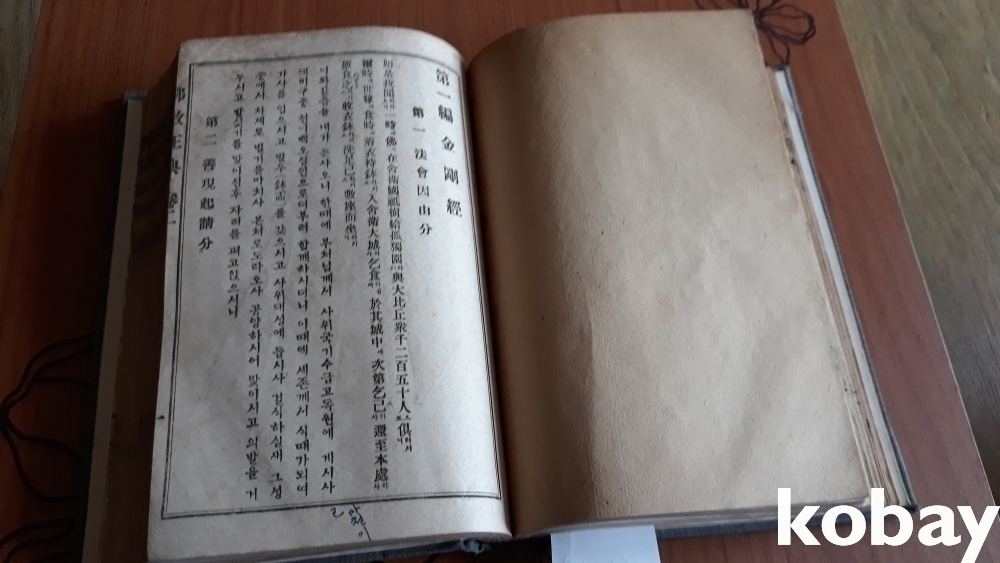 第一編 金剛經
第一 法會因由分
如是我聞 一時 佛 在舍衛國祇樹給孤獨園 與大比丘衆千二百五十人 俱
爾時 世尊 食時 着衣持鉢 入舍衛大城 乞食 於其城中 次第乞已 還至本處
飯食訖 收衣鉢 洗足已 敷座而坐
이와같음을 내가 듣사오니 한때에 부처님께서 사위국기수급고독원에 계시사
대비구중 천이백오십인으로더부러 함께하시더니 이때에 세존께서 식때가되여
가사를 입으시고 발우(鉢盂)를 갖으시고 사위대성에 들시사 걸식하실새 그성
중에서 차제로 빌기를마치사 본처로도라오사 공양하시어 맞이시고 의발을 거
두시고 발싯기를 맞이신후 자리를 펴고앉으시니
第二 善現起請分
佛敎正典 卷二
kobay